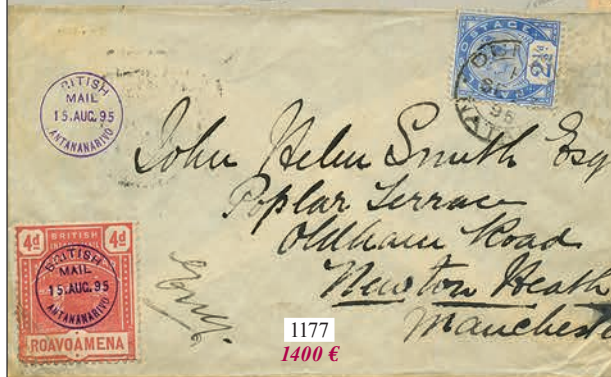 POSTAGE
2½d
BRITISH
MAIL
15.AUG.95
ANTANANARIVO
John Helen Smith Esq
Poplar Terrace
Oldham Road
Newton Heath
Manchest
4d BRITISH 4d
BRITISH
MAIL
15.AUG.95
ANTANANARIVO
ROAVOAMENA
1177
1400 €